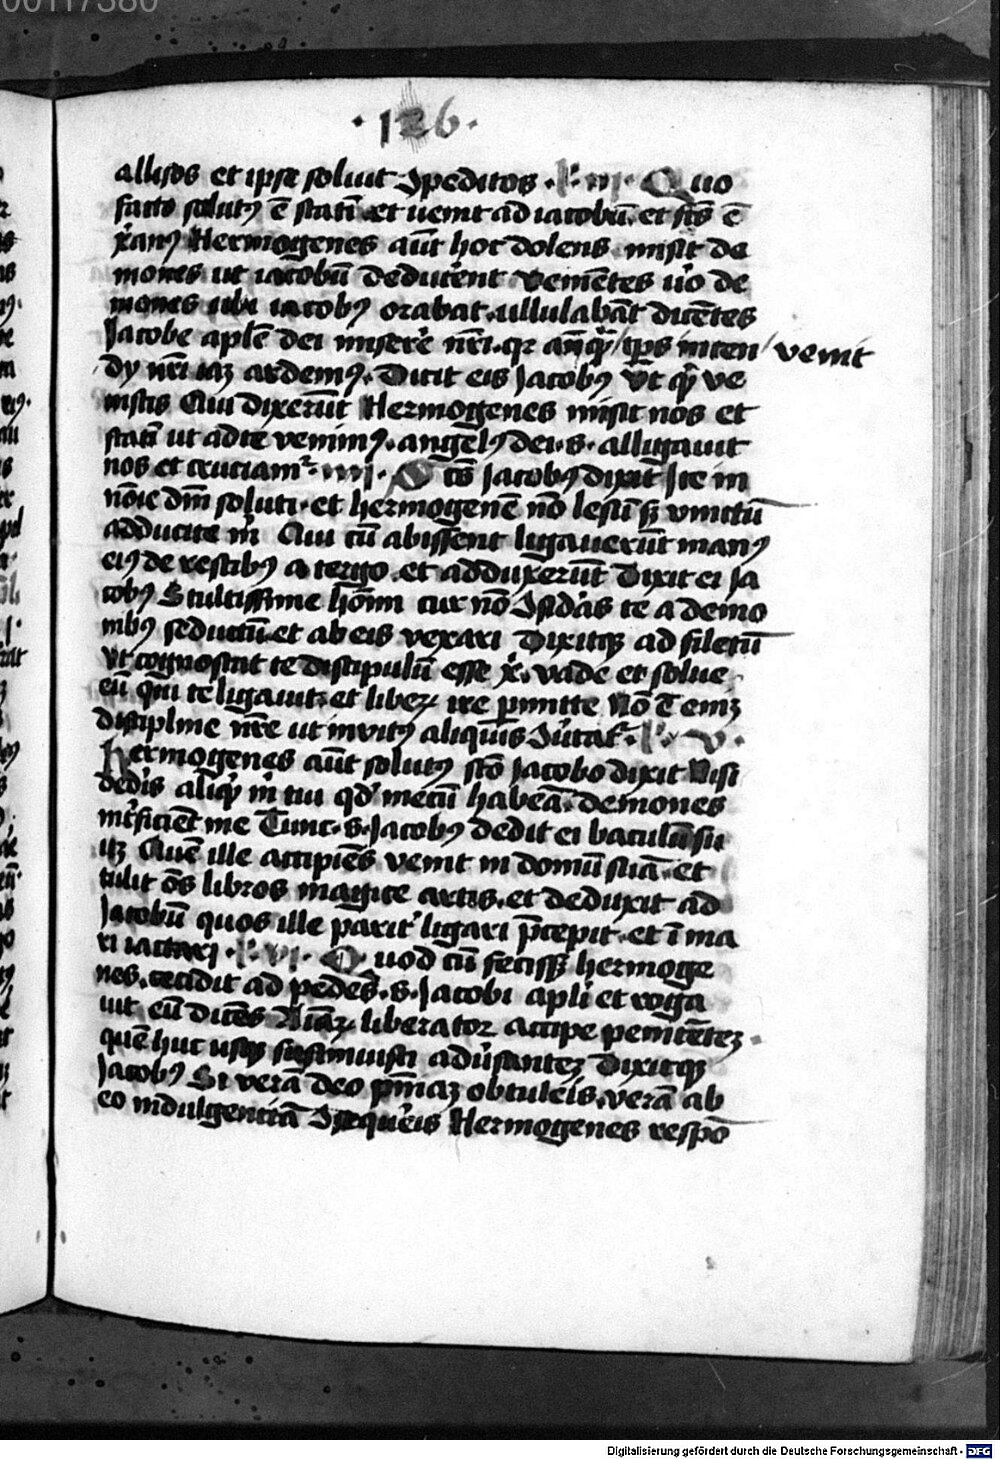 00117380
·126·
allisos et ipse soluit Ipeditos · R · iij · Quo
facto solutꝰ ē statī et uenit ad iacobū et fcs̄ ē
xr̄anꝰ Hermogenes aūt hoc dolens misit de
mones ut iacobū deducerent venientes u̇o de
mones ubi iacobꝰ orabat ullulabāt dicētes
Jacobe apl̄e dei miserē nr̄i · qr an̄qȝ tp̄s incen / venit
dij nr̄i iaȝ ardemꝰ · Dicit eis Jacobꝰ vt qͥ ve
nistis Cui dixerūt Hermogenes misit nos et
statī ut ad te venimꝰ · angelꝰ dei · s · alligauit
nos et cruciamͬ · iiij · Sc̄s Jacobꝰ dixit Ite in
nōie dn̄i soluti · et hermogenē nō lesū sȝ vinctū
adducite m̄ Qui cū abissent ligauerūt manꝰ
eiꝰ de restibꝰ a tergo et adduxerūt Dixit ei ja
cobꝰ Stultissime hom̄i cur nō te a demo
nibꝰ seductū et ab eis vexari Dixitqȝ ad filetū
vt cognoscat te discipulū esse xͥ · vade et solue
eū qui te ligauit et liberȝ ire pmitte Nō ē eniȝ
discipline nr̄e ut invitꝰ aliquis · R · v ·
Hermogenes aūt solutꝰ sc̄o Jacobo dixit Nisi
dedis aliqͥ m̄ tui qd mecū habeā · demones
int̄ficiēt me Tunc · s · Jacobꝰ dedit ei baculū su
ū Quē ille accipiēs venit in domū suā · et
tulit ōs libros magice artis · et deduxit ad
Jacobū quos ille ligari p̄cepit · et ī ma
ri iactari · R · vj · Quod cū fecissȝ hermoge
nes · cecidit ad pedes · s · Jacobi apl̄i et roga
uit eū dicēs Aīarȝ liberator accipe penitēteȝ ·
quē huc usqȝ sustinuisti Dixitqȝ
Jacobꝰ Si verā deo pn̄iaȝ obtuleis · verā ab
eo indulgentiā Hermogenes respō
Digitalisierung gefördert durch die Deutsche Forschungsgemeinschaft - DFG